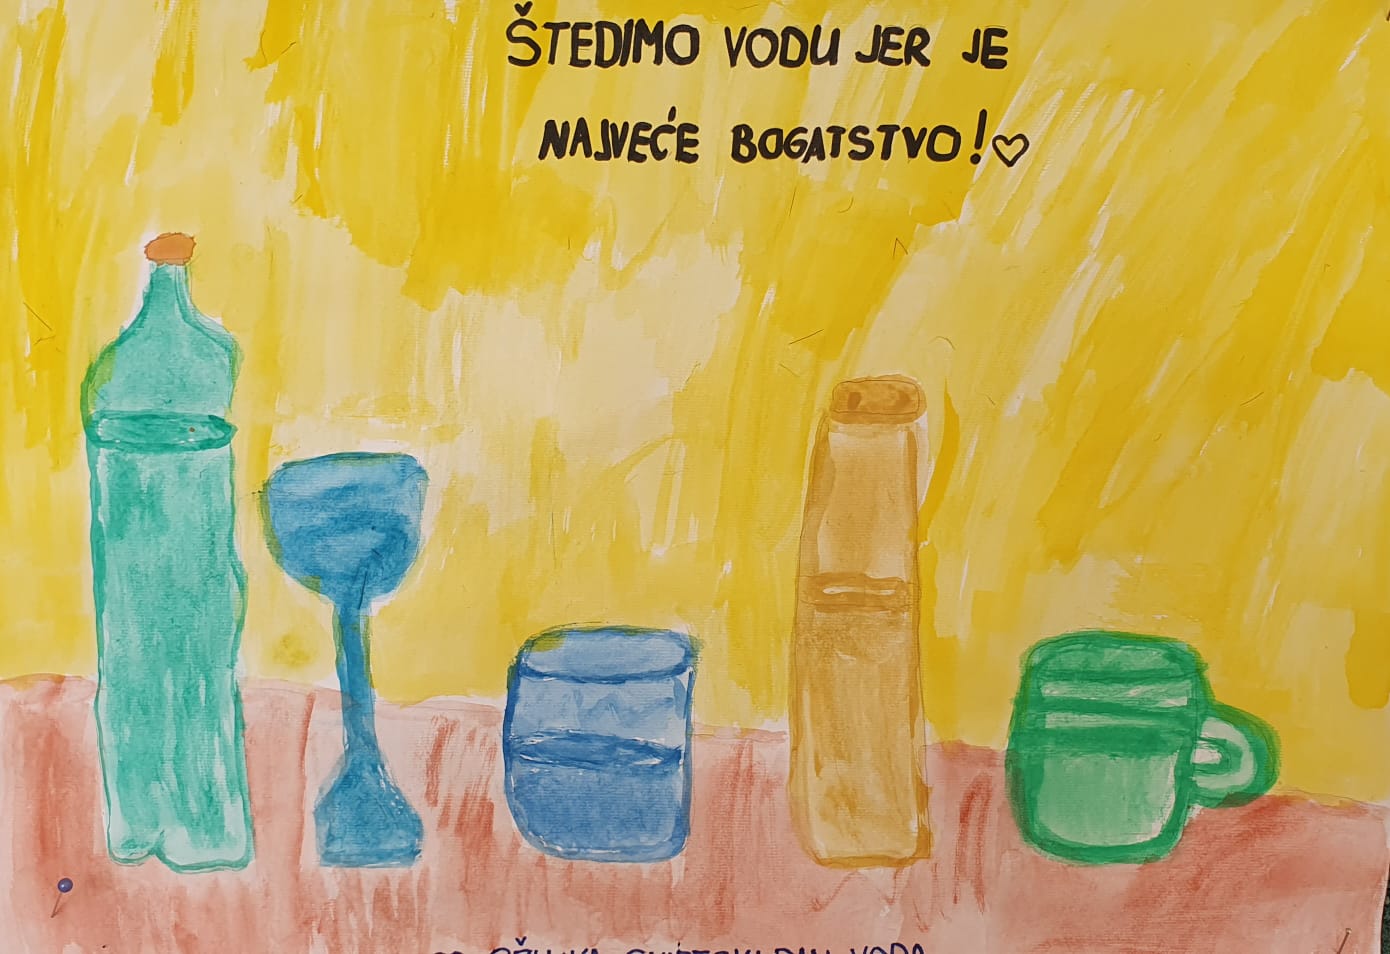 ŠTEDIMO VODU JER JE
NAJVEĆE BOGATSTVO!
OŽUJKA SVJETSKI DAN VODA